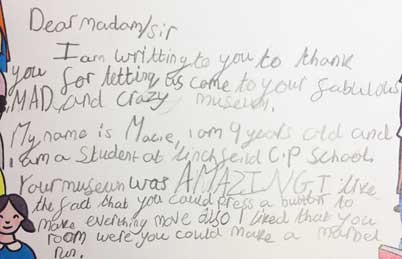 Dear madam/sir
I am writting to you to thank
you for letting us come to your fabulous
MAD and crazy museum.
My name is Macie, i am 9 years old and
i am a Student at Linchfeild C.P School.
Your museum was AMAZING, I like
the fact that you could press a button to
make everthing move also I liked that you
room were you could make a marbel
run.